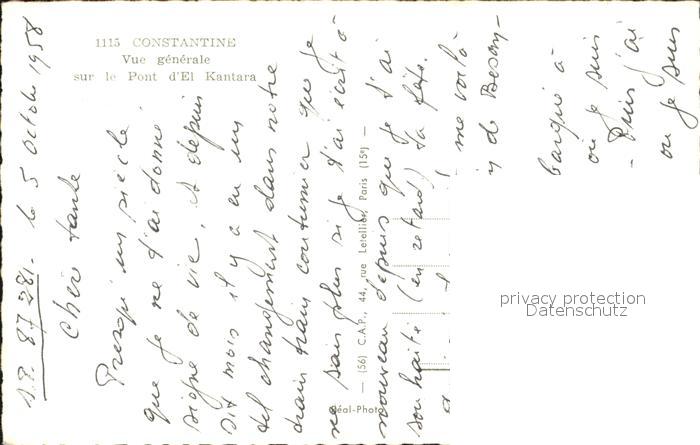 1115 CONSTANTINE
Vue générale
sur le Pont d'El Kantara
S.P. 87.281. le 5 Octobre 1958
Chère tante
Presqu'un siècle
que je ne t'ai donné
signe de vie, et depuis
dix mois il y a eu un
tel changement dans notre
train train coutumier que je
ne sais plus si je t'ai écrit à
nouveau depuis que je t'ai
souhaité (en retard) ta fête.
me voilà
y de Besan-
barqué à
où je suis
- Puis j'ai
où je suis
— (56) C.A.P., 44, rue Letellier, Paris (15e) —
Réal-Photo
privacy protection
Datenschutz